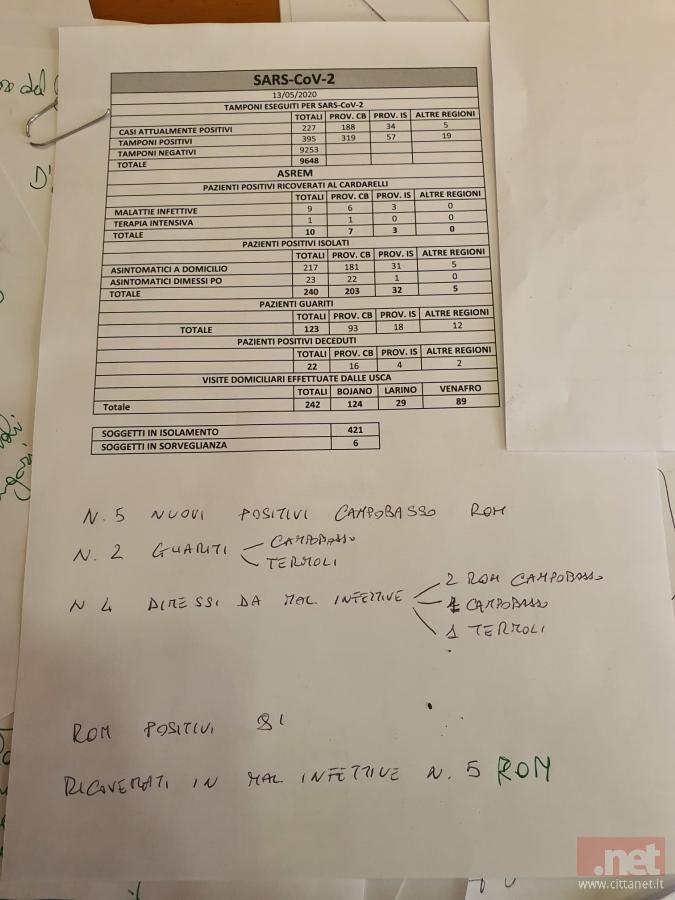 SARS-CoV-2
13/05/2020
TAMPONI ESEGUITI PER SARS-CoV-2
TOTALI PROV. CB PROV. IS ALTRE REGIONI
CASI ATTUALMENTE POSITIVI 227 188 34 5
TAMPONI POSITIVI 395 319 57 19
TAMPONI NEGATIVI 9253
TOTALE 9648
ASREM
PAZIENTI POSITIVI RICOVERATI AL CARDARELLI
TOTALI PROV. CB PROV. IS ALTRE REGIONI
MALATTIE INFETTIVE 9 6 3 0
TERAPIA INTENSIVA 1 1 0 0
TOTALE 10 7 3 0
PAZIENTI POSITIVI ISOLATI
TOTALI PROV. CB PROV. IS ALTRE REGIONI
ASINTOMATICI A DOMICILIO 217 181 31 5
ASINTOMATICI DIMESSI PO 23 22 1 0
TOTALE 240 203 32 5
PAZIENTI GUARITI
TOTALI PROV. CB PROV. IS ALTRE REGIONI
TOTALE 123 93 18 12
PAZIENTI POSITIVI DECEDUTI
TOTALI PROV. CB PROV. IS ALTRE REGIONI
22 16 4 2
VISITE DOMICILIARI EFFETTUATE DALLE USCA
TOTALI BOJANO LARINO VENAFRO
Totale 242 124 29 89
SOGGETTI IN ISOLAMENTO 421
SOGGETTI IN SORVEGLIANZA 6
N. 5 NUOVI POSITIVI CAMPOBASSO ROM
N. 2 GUARITI CAMPOBASSO
TERMOLI
N 4 DIMESSI DA MAL. INFETTIVE 2 ROM CAMPOBASSO
1 CAMPOBASSO
1 TERMOLI
ROM POSITIVI 81
RICOVERATI IN MAL INFETTIVE N. 5 ROM
.net
www.cittanet.it